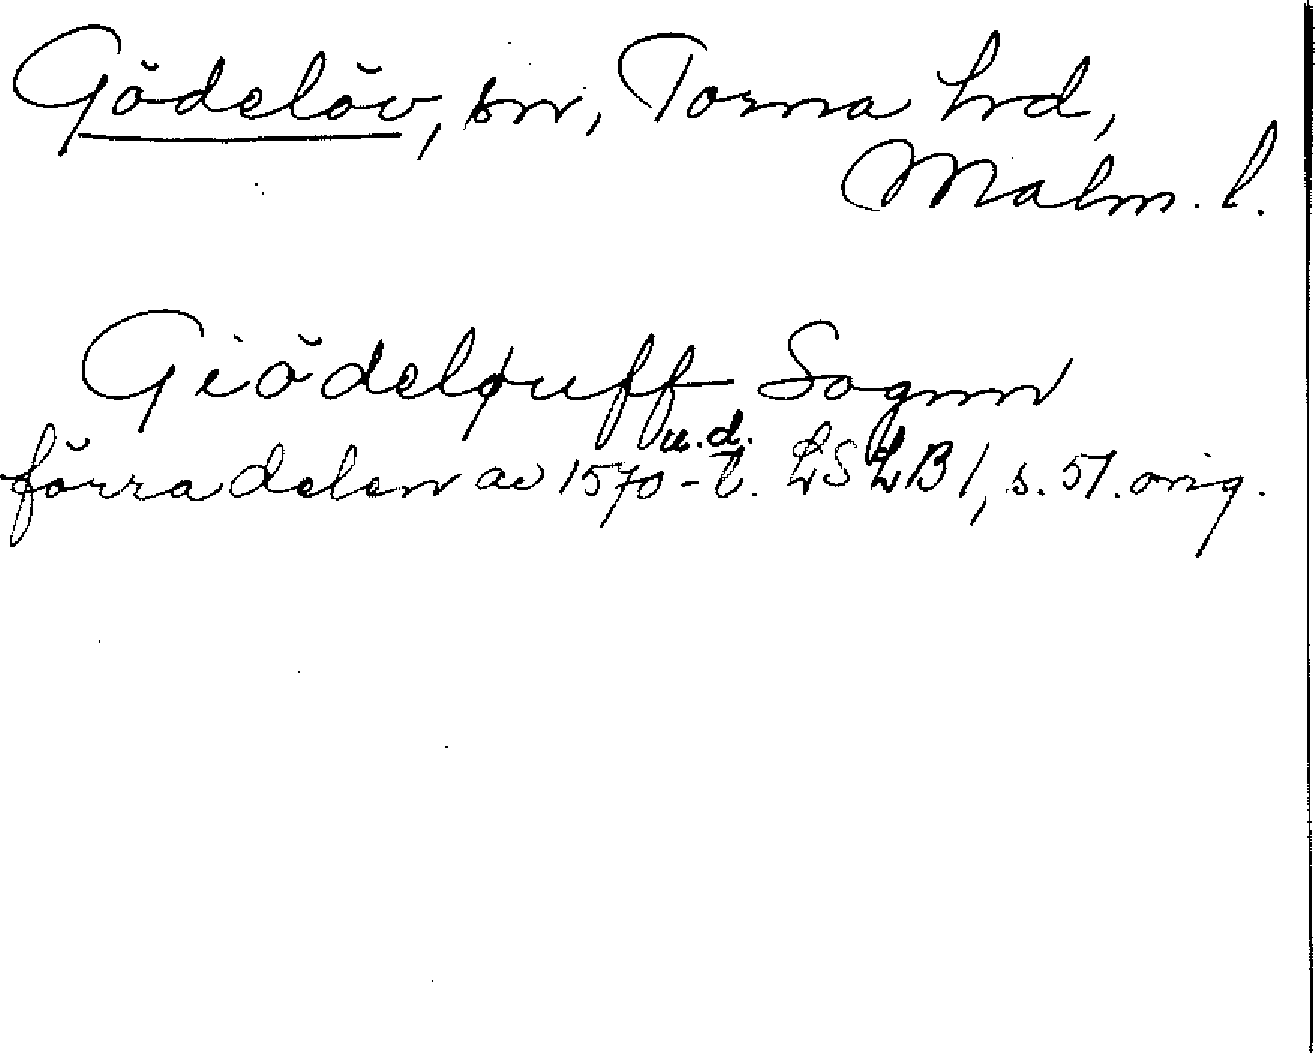 Gödelöv, sn, Torna hd,
Malm. l.
Giödeløuff Sognn
u.d.
förra delen av 1570-t. LSLB 1, s. 51. orig.